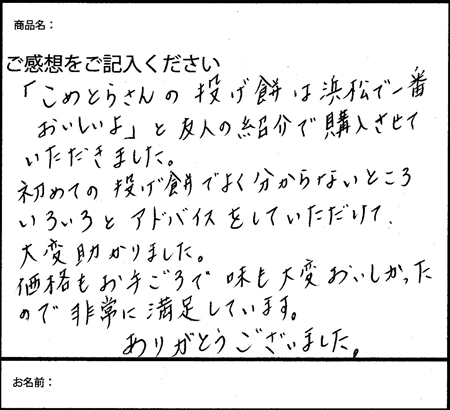 商品名：
ご感想をご記入ください
「こめとらさんの投げ餅は浜松で一番
おいしいよ」と友人の紹介で購入させて
いただきました。
初めての投げ餅でよく分からないところ
いろいろとアドバイスをしていただけて、
大変助かりました。
価格もお手ごろで味も大変おいしかった
ので非常に満足しています。
ありがとうございました。
お名前：